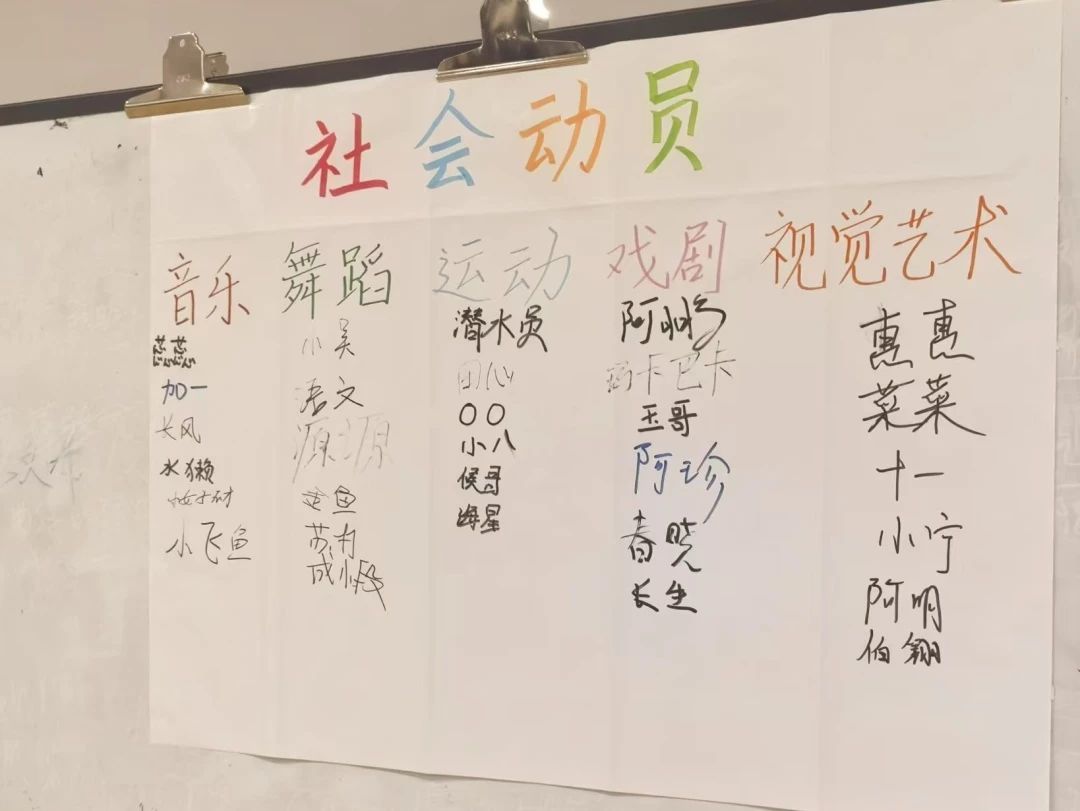 社会动员
音乐 舞蹈 运动 戏剧 视觉艺术
蕊蕊
加一
长风
水獭
小飞鱼
小吴
语文
源源
苏为
潜水员
团心
〇〇
小八
侯哥
海星
卡巴卡
玉哥
阿珍
春晓
长生
惠惠
菜菜
十一
小宁
阿明
伯翎